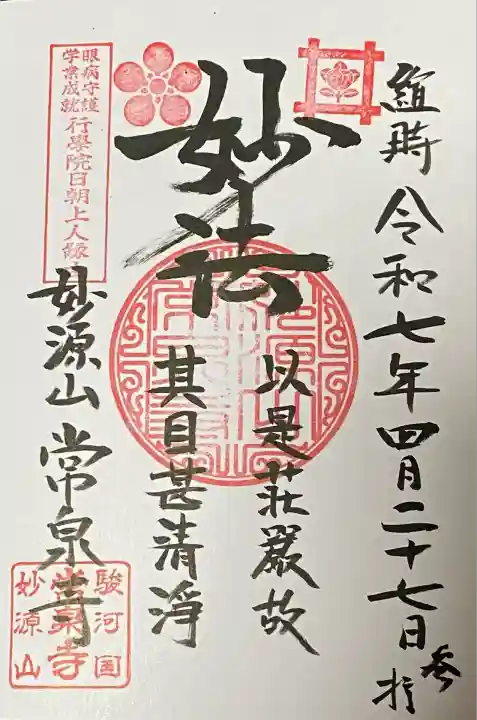 維時 令和七年四月二十七日 参拝
妙法
以是荘厳故
其目甚清淨
眼病守護
学業成就
行學院日朝上人
妙源山 常泉寺
駿河国
常泉寺
妙源山